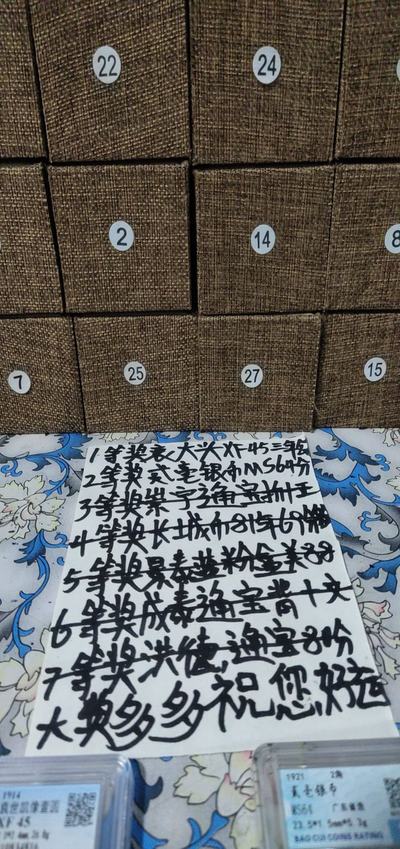 22
24
2
14
8
7
25
27
15
1等奖袁大头XF45三年
2等奖贰毫银币MS64分
3等奖崇宁通宝折五
4等奖长城币81年69分
5等奖景泰蓝粉盒美88
6等奖咸泰通宝背十文
7等奖洪德通宝80分
大奖多多祝您好运
1914
XF 45
1921
2角
贰毫银币
MS64
广东省造
23.5*1.5mm*5.3g
BAO CUI COINS RATING